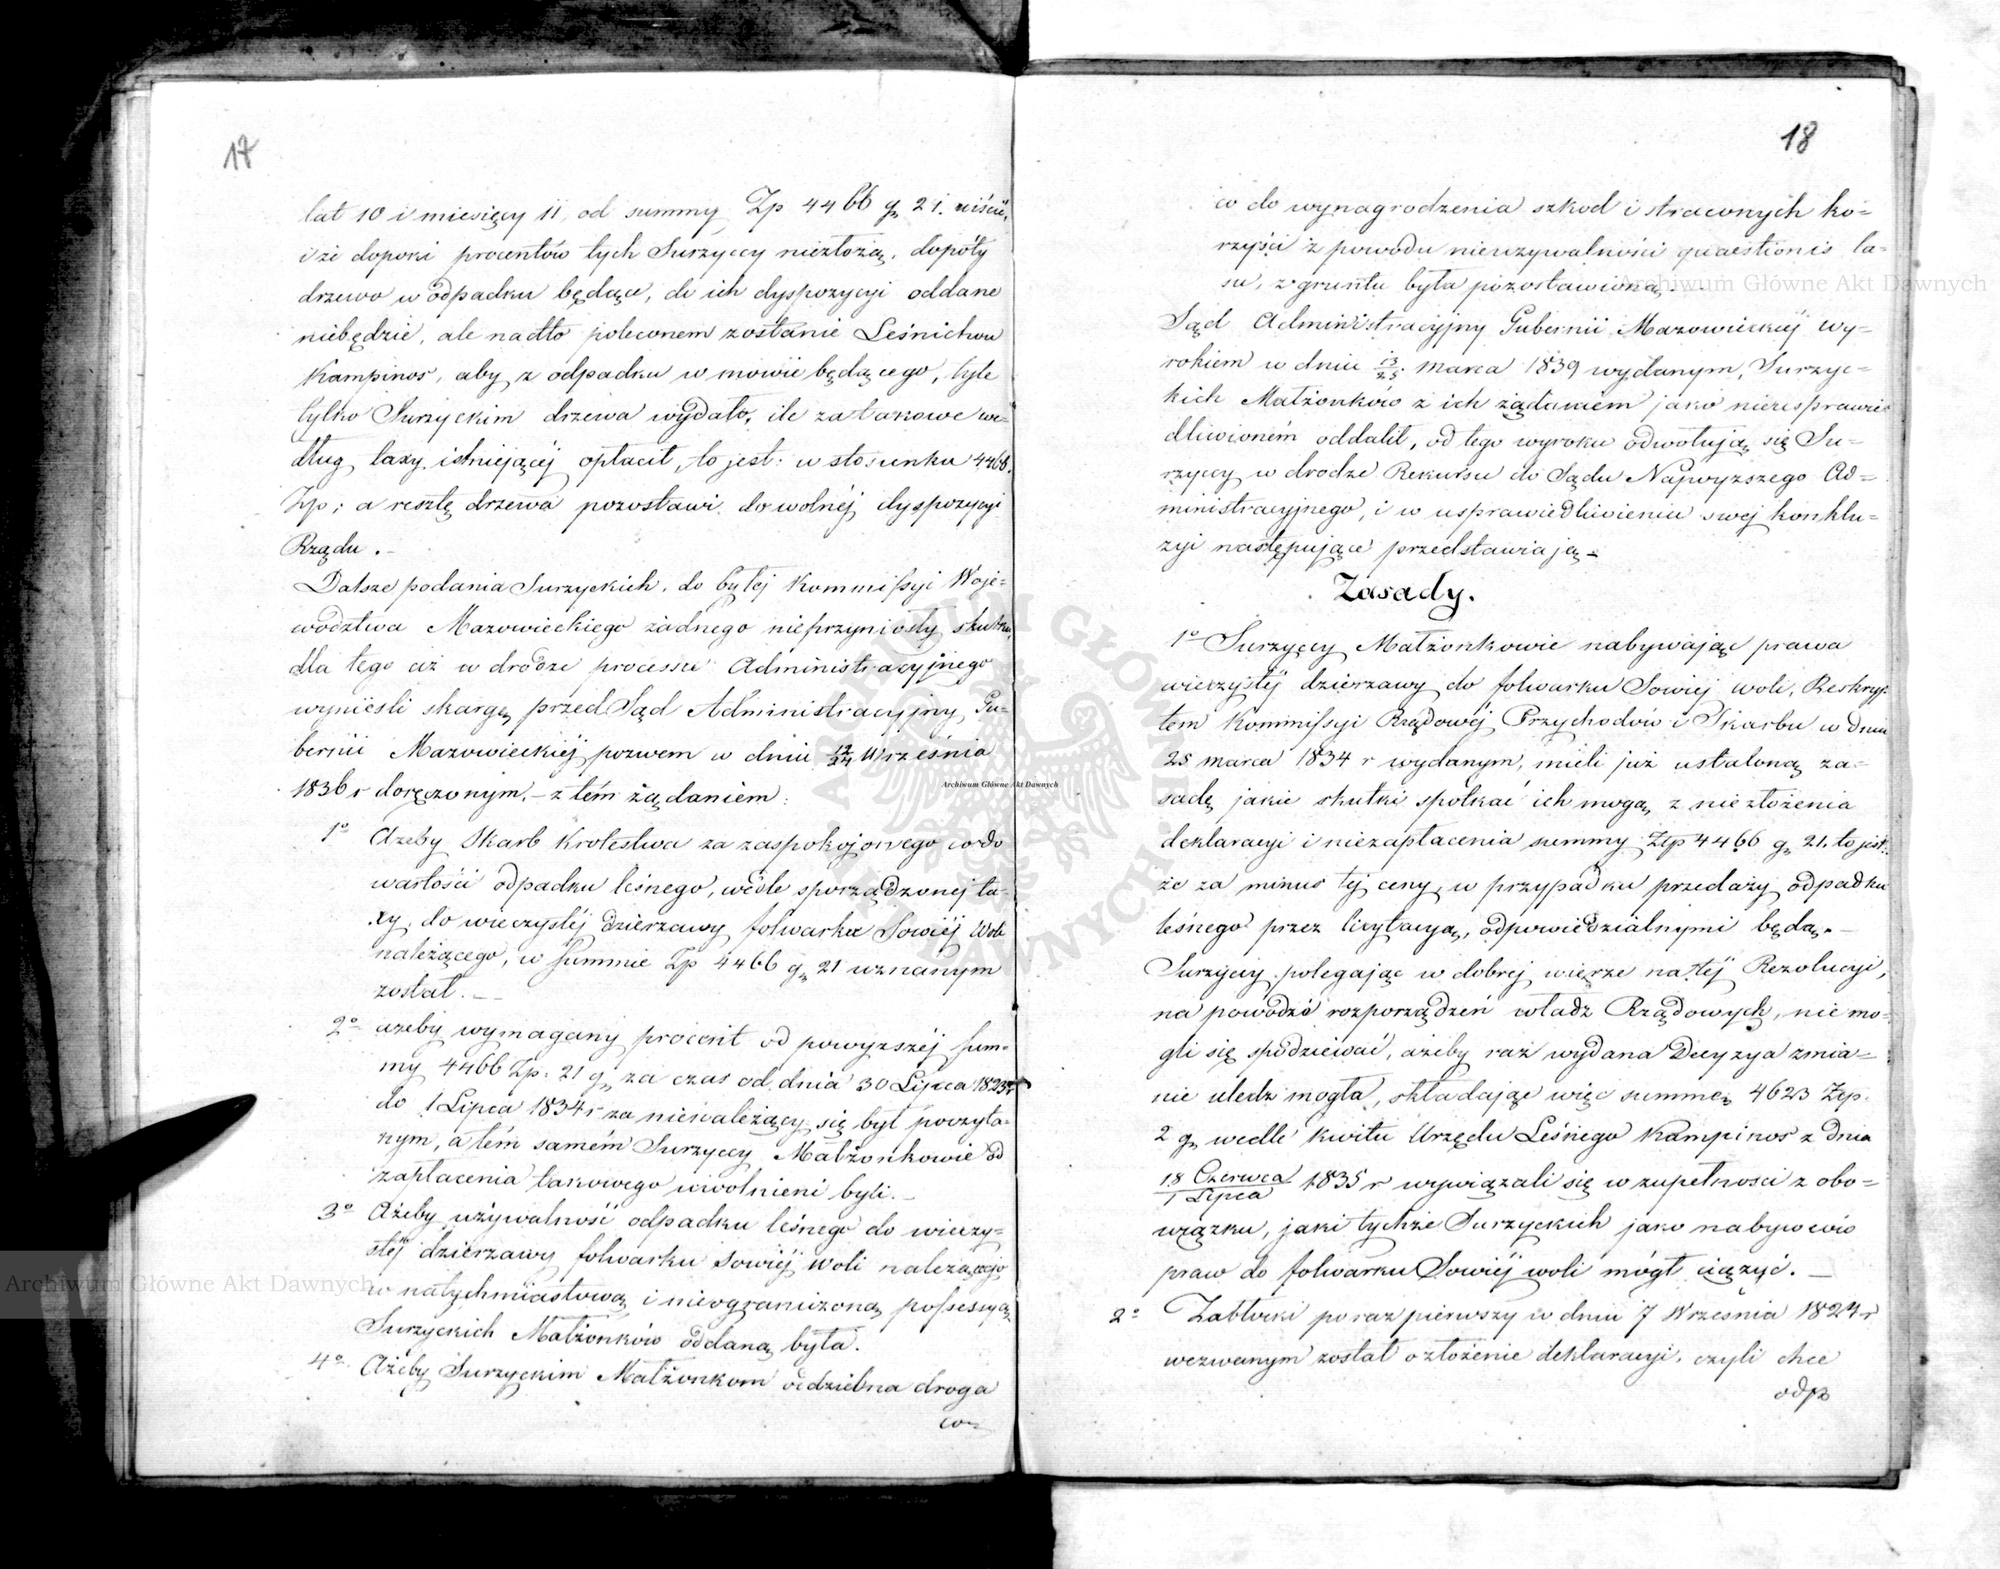 17
lat 10 i miesięcy 11, od summy Zp 4466 g 21. uiścić,
i że dopoki procentów tych Surzyccy niezłożą, dopóty
drzewo w odpadku będące, do ich dyspozycyi oddane
niebędzie, ale nadto poleconem zostanie Leśnictwu
Kampinos, aby z odpadku w mowie będącego, tyle
tylko Surzyckim drzewa wydało, ile za takowe we-
dług taxy istniejącéj opłacił, to jest: w stosunku 4466.
Zp; a resztę drzewa pozostawi do wolnéj dyspozycyi
Rządu.-
Dalsze podania Surzyckich, do byłej Kommissyi Woje-
wództwa Mazowieckiego żadnego nieprzyniosły skutku,
dla tego aż w drodze processu Administracyjnego
wynieśli skargę przed Sąd Administracyjny Gu-
bernii Mazowieckiéj pozwem w dniu 12/24 Września
1836 r doręczonym.- z tém żądaniem:
1o Ażeby Skarb Królestwa za zaspokojonego co do
wartości odpadku leśnego, wedle sporządzonej ta-
xy, do wieczystéj dzierzawy folwarku Sowiéj Woli
należącego, w summie Zp 4466 g 21 uznanym
został.-
2o ażeby wymagany procent od powyższéj sum-
my 4466 Zp. 21 g za czas od dnia 30 Lipca 1823 r
do 1 Lipca 1834 r za nienależący się był poczyta-
nym, a tém samém Surzyccy Małżonkowie od
zapłacenia takowego uwolnieni byli.-
3o Ażeby używalność odpadku leśnego do wieczy-
stéj dzierzawy folwarku Sowiéj Woli należącego
w natychmiastową i nieograniczoną possessyą
Surzyckich Małżonków oddaną była.
4o Ażeby Surzyckim Małżonkom oddzielna droga
co-
18
co do wynagrodzenia szkod i straconych ko-
rzyści z powodu nieużywalności quaestionis la-
su, z gruntu była pozostawioną.-
Sąd Administracyjny Gubernii Mazowieckiéj wy-
rokiem w dniu 13/25 marca 1839 wydanym, Surzyc-
kich Małżonków z ich żądaniem jako nieusprawie-
dliwioném oddalił, od tego wyroku odwołują się Su-
rzyccy w drodze Rekursu do Sądu Najwyzszego Ad-
ministracyjnego, i w usprawiedliwieniu swej konklu-
zyi następujące przedstawiają-
Zasady.
1o Surzyccy Małżonkowie nabywając prawa
wieczystéj dzierzawy do folwarku Sowiéj woli, Reskryp-
tem Kommissyi Rządowéj Przychodów i Skarbu w dniu
25 marca 1834 r wydanym, mieli już ustaloną za-
sadę jakie skutki spotkać ich mogą z niezłożenia
deklaracyi i niezapłacenia summy Złp 4466 g 21. to jest:
że za minus téj ceny, w przypadku przedaży odpadku
leśnego przez licytacyą, odpowiedzialnymi będą.-
Surzyccy polegając w dobrej wierze na téj Rezolucyi,
na powodzie rozporządzeń władz Rządowych, nie mo-
gli się spodziewać, ażeby raz wydana Decyzya zmia-
nie uledz mogła, składając więc summę 4623 Złp.
2 g wedle kwitu Urzędu Leśnego Kampinos z dnia
18 Czerwca/1 Lipca 1835 r wywiązali się w zupełności z obo-
wiązku, jaki tychże Surzyckich jako nabywców
praw do folwarku Sowiéj woli mógł ciążyć.-
2o Zabłocki po raz pierwszy w dniu 7 Września 1824 r
wezwanym został o złożenie deklaracyi, czyli chce
odp
Archiwum Główne Akt Dawnych
Archiwum Główne Akt Dawnych
Archiwum Główne Akt Dawnych